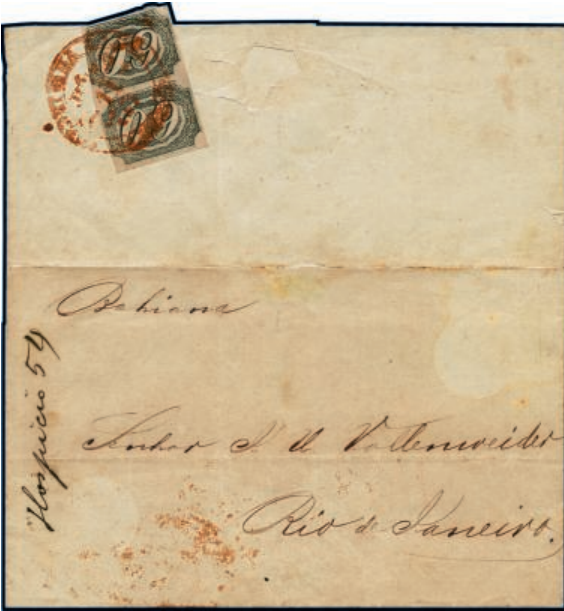 60
60
Bahiana
Hospicio 54
Senhor J. U. Vollenweider
Rio de Janeiro.